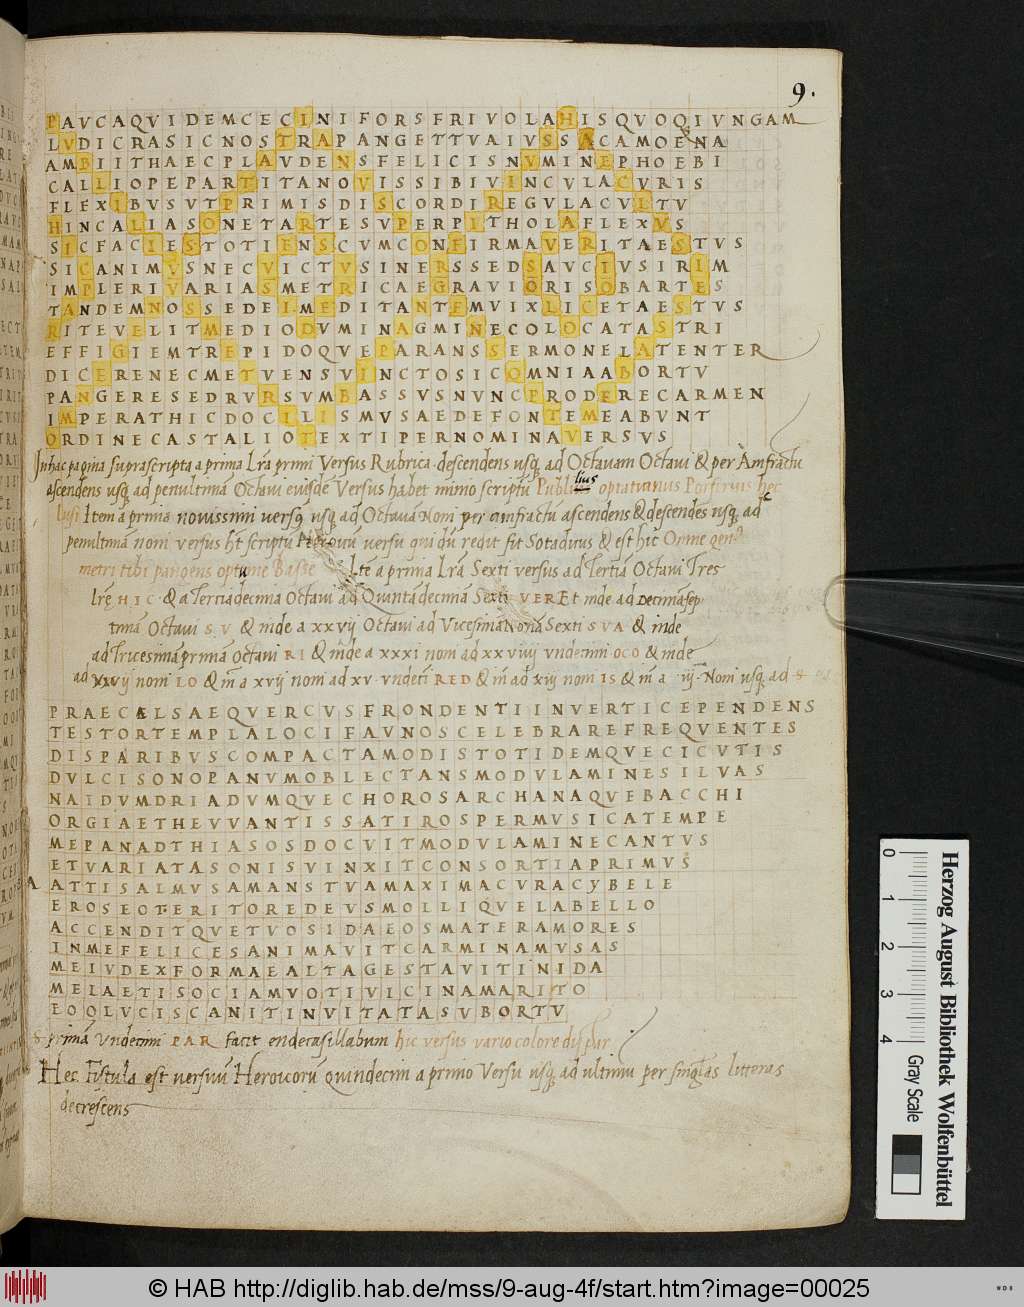 9.
PAVCAQVIDEMCECINIFORSFRIVOLAHISQVOQIVNGAM
LVDICRASICNOSTRAPANGETTVAIVSSACAMOENA
AMBIITHAECPLAVDENSFELICISNVMINEPHOEBI
CALLIOPEPARTITANOVISSIBIVINCVLACVRIS
FLEXIBVSVTPRIMISDISCORDIREGVLACVLTV
HINCALIASONETARTESVPERPITHOLAFLEXVS
SICFACIESTOTIENSCVMCONFIRMAVERITAESTVS
SICANIMVSNECVICTVSINERSSEDSAVCIVSIRIM
IMPLERIVARIASMETRICAEGRAVIORISOBARTES
TANDEMNOSSEDEIMEDITANTEMVIXLICETAESTVS
RITEVELITMEDIODVMINAGMINECOLOCATASTRI
EFFIGIEMTREPIDOQVEPARANSSERMONELATENTER
DICERENECMETVENSVINCTOSICOMNIAABORTV
PANGERESEDRVRSVMBASSVSNVNCPRODERECARMEN
IMPERATHICDOCILISMVSAEDEFONTEMEABVNT
ORDINECASTALIOTEXTIPERNOMINAVERSVS
In hac pagina suprascripta a prima Lrã primi Versus Rubrica descendens usq ad Octavam Octavi & per Amfractu
ascendens usq ad penultimã Octavi eiusdẽ Versus habet minio scriptũ Publi lius optatianus Porfirius hec
lusi Item a prima novissimi versq usq ad Octavã Noni per amfractũ ascendens & descendes usq ad
penultimã noni versus ht scriptũ versu qui dũ regit fit Sotadicus & est hic Omne gen
metri tibi pangens optume Basse Itẽ a prima Lrã Sexti versus ad Tertiã Octavi Tres
lrę HIC & a Terciadecima Octavi ad Quintadecimã Sexti VER Et inde ad Decimãsep
timã Octavi SV & inde a xxvij Octavi ad VicesimãNonã Sexti SVA & inde
ad Tricesimãprimã Octavi RI & inde a xxxi noni ad xxviiij undecimi OCO & inde
ad xxvij noni LO & iñ a xvij noni ad xv undeci RED & iñ ad xiij noni IS & iñ a iij Noni usq ad
PRAECAELSAEQVERCVSFRONDENTIINVERTICEPENDENS
TESTORTEMPLALOCIFAVNOSCELEBRAREFREQVENTES
DISPARIBVSCOMPACTAMODISTOTIDEMQVECICVTIS
DVLCISONOPANVMOBLECTANSMODVLAMINESILVAS
NAIDVMDRIADVMQVECHOROSARCHANAQVEBACCHI
ORGIAETHEVVANTISSATIROSPERMVSICATEMPE
MEPANADTHIASOSDOCVITMODVLAMINECANTVS
ETVARIATASONISVINXITCONSORTIAPRIMVS
A ATTISALMVSAMANSTVAMAXIMACVRACYBELE
EROSEOTERITOREDEVSMOLLIQVELABELLO
ACCENDITQVETVOSIDAEOSMATERAMORES
INMEFELICESANIMAVITCARMINAMVSAS
MEIVDEXFORMAEALTAGESTAVITINIDA
MELAETISOCIAMVOTIVICINAMARITO
EOOLVCISCANITINVITATASVBORTV
S primã Undecimi PAR facit endecasillabum hic versus vario colore dispar
Hec Fistula est versuũ Heroicorũ quindecim a primo Versu usq ad ultimũ per singlas litteras
decrescens
Herzog August Bibliothek Wolfenbüttel
0 1 2 3 4
Gray Scale
© HAB http://diglib.hab.de/mss/9-aug-4f/start.htm?image=00025